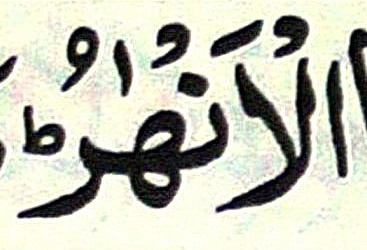 الْاَنْهٰرُؕ